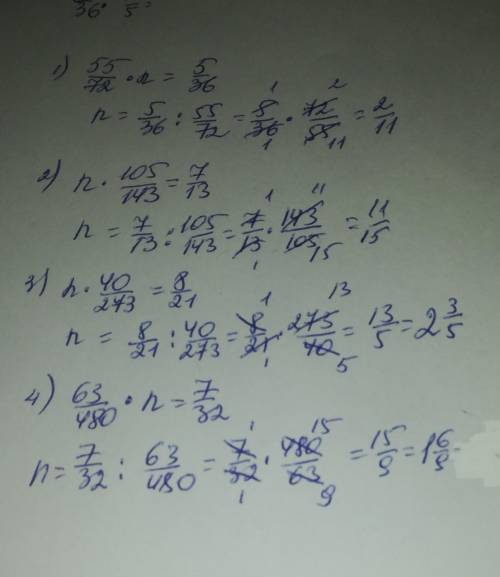 36 · 5
1) 55/72 · n = 5/36
n = 5/36 : 55/72 = 5/36 · 72/55 = 2/11
2) n · 105/143 = 7/13
n = 7/13 : 105/143 = 7/13 · 143/105 = 11/15
3) n · 40/273 = 8/21
n = 8/21 : 40/273 = 8/21 · 273/40 = 13/5 = 2 3/5
4) 63/480 · n = 7/32
n = 7/32 : 63/480 = 7/32 · 480/63 = 15/9 = 1 6/9